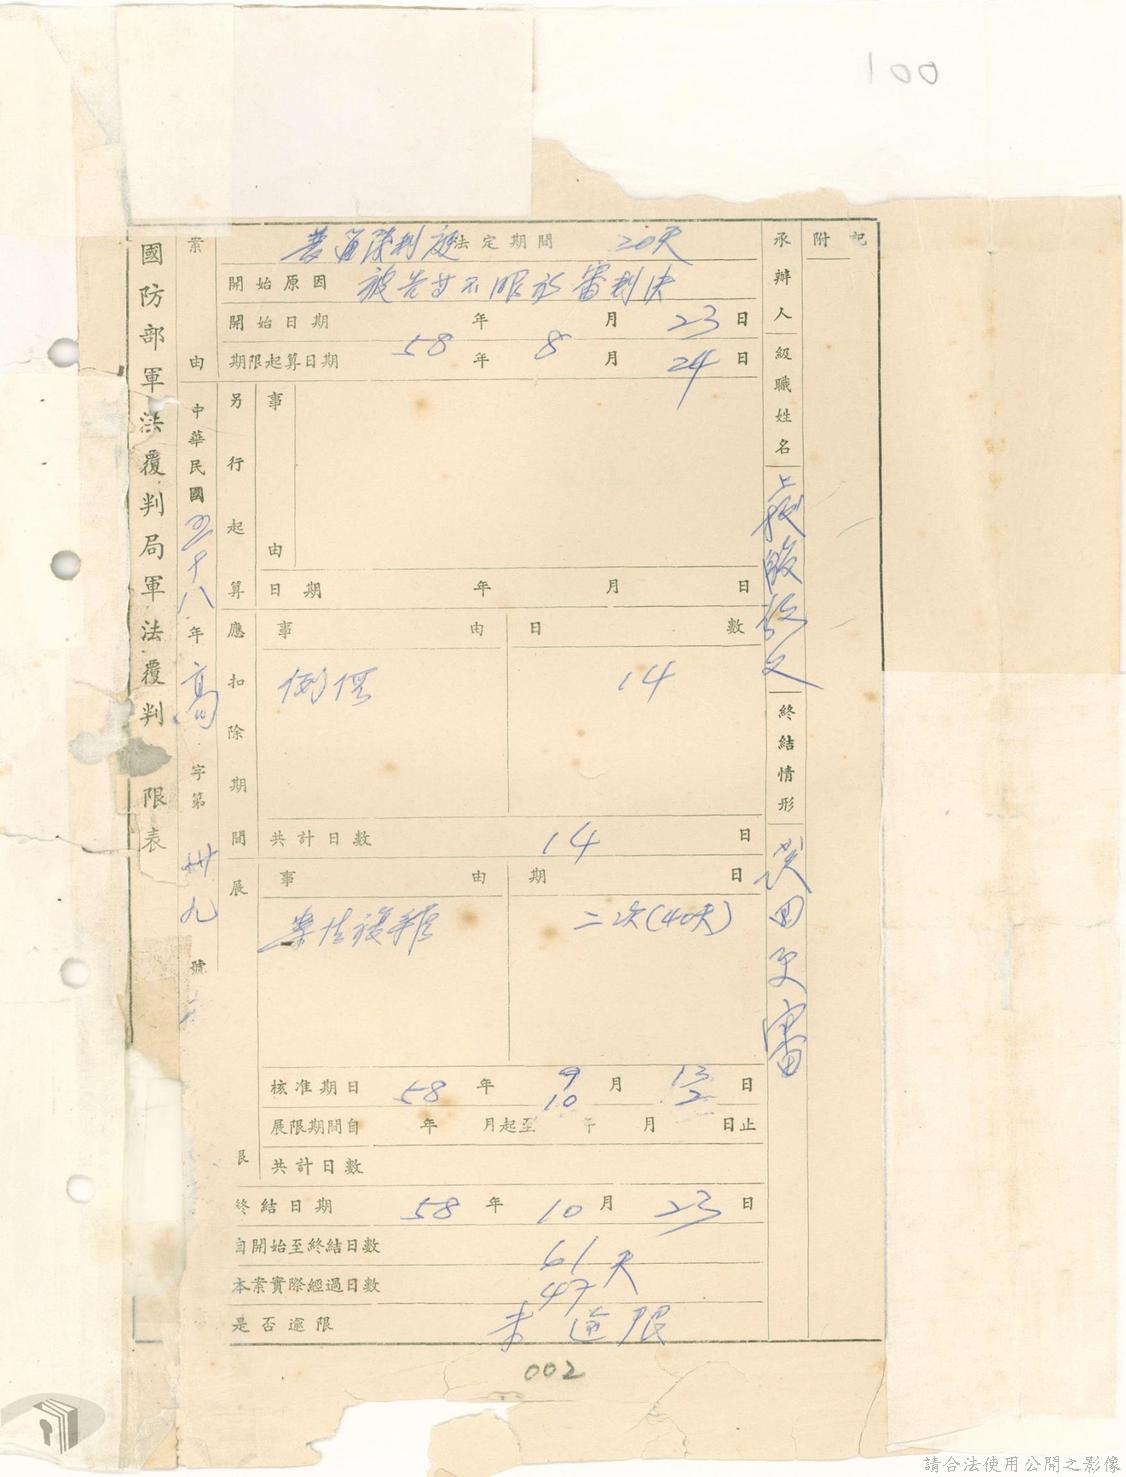 001
國防部軍法覆判局軍法覆判 限表
案由
中華民國五十八年高字第卅九號
普通陪判庭法定期間 20天
開始原因 被告等不服初審判決
開始日期 58年8月23日
期限起算日期 年 月24日
另行起算
事由
日期 年 月 日
應扣除期間
事由 日數
例假 14
共計日數 14日
展
事由 期日
案情複雜 二次(40天)
核准期日 58年 9月13日
10 2
展限期間自 年 月起至 年 月 日止
限
共計日數
終結日期 58年10月23日
自開始至終結日數 61天
本案實際經過日數 47
是否逾限 未逾限
承辦人級職姓名
終結情形 發回更審
附記
002
請合法使用公開之影像